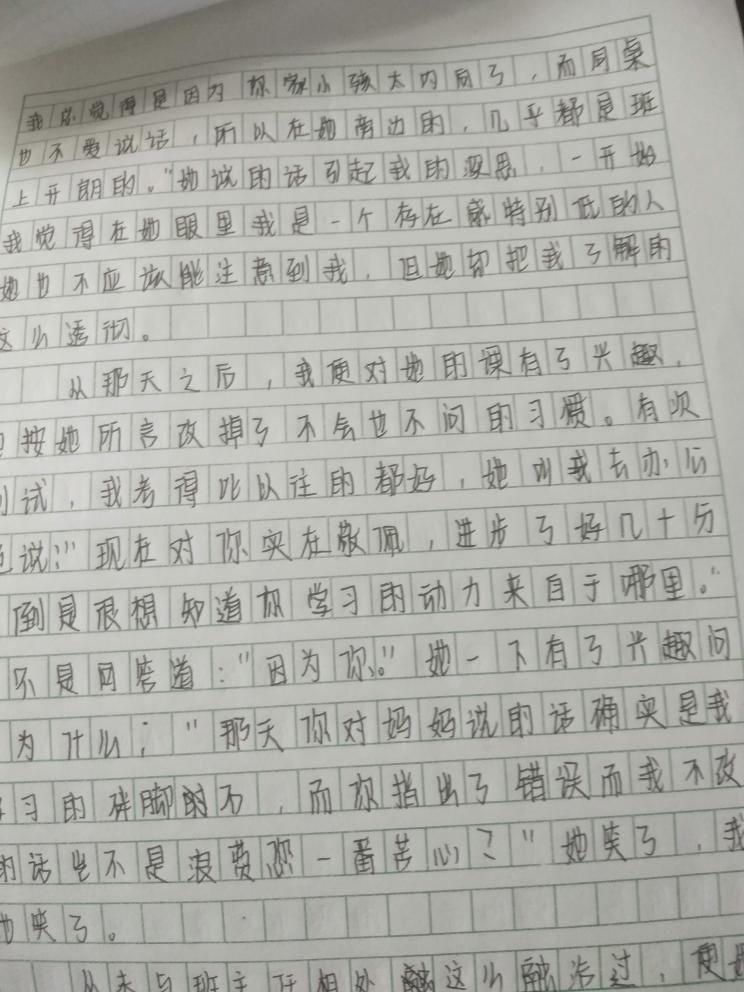 我你觉得是因为你家小孩太内向了，而同桌
也不爱说话，所以在她旁边的，几乎都是班
上开朗的。"她说的话引起我的深思，一开始
我觉得在她眼里我是一个存在感特别低的人
她也不应该能注意到我，但她却把我了解的
这么透彻。
从那天之后，我便对她的课有了兴趣，
按她所言改掉了不会也不问的习惯。有次
试，我考得比以往的都好，她叫我去办公
说："现在对你实在敬佩，进步了好几十分
倒是很想知道你学习的动力来自于哪里。"
不是回答道："因为你。"她一下有了兴趣问
为什么；"那天你对妈妈说的话确实是我
习的绊脚石，而你指出了错误而我不改
的话岂不是浪费您一番苦心？"她笑了，我
也笑了。
从未与班主任相处这么融洽过，便